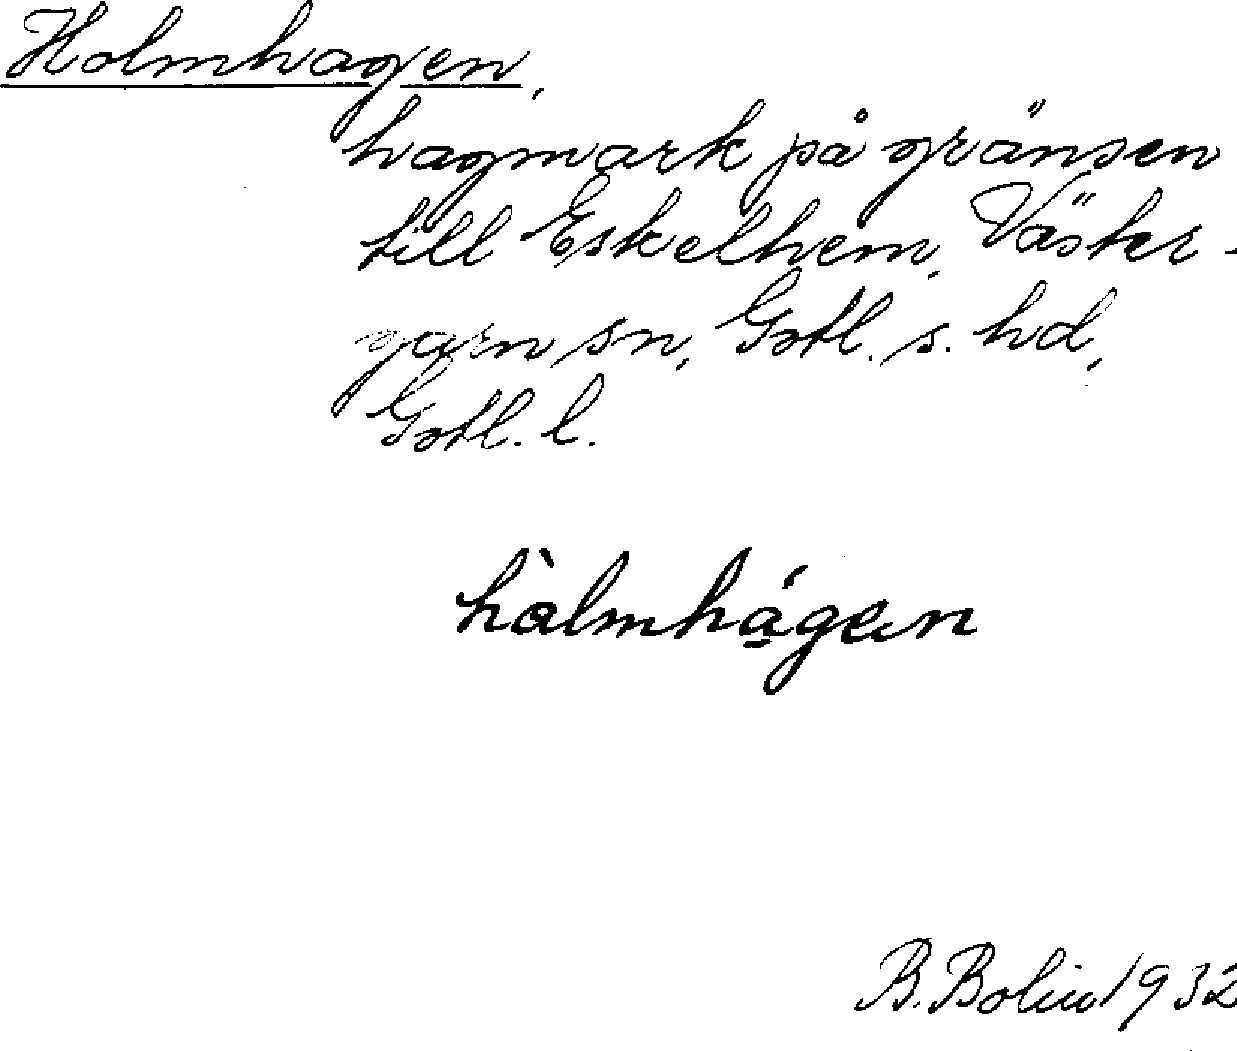 Holmhagen,
hagmark på gränsen
till Eskelhem, Väster-
garn sn, Gotl. s. hd,
Gotl. l.
hòlmhá̱gen
B. Bolin 1932